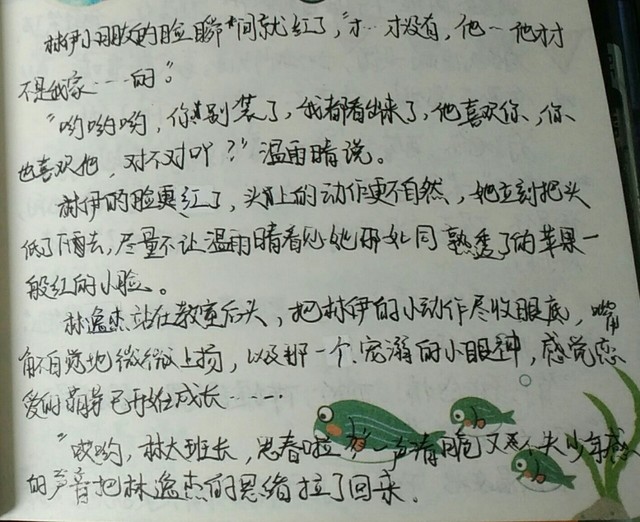 林伊小朋友的脸瞬间就红了，“才…才没有，他一他才
不是我家……的”。
“哟哟哟，你别装了，我都看出来了，他喜欢你，你
也喜欢他，对不对吖？”温雨晴说。
林伊的脸更红了，头上的动作更不自然，她立刻把头
低了下去，尽量不让温雨晴看见她那如同熟透了的苹果一
般红的小脸。
林逸杰站在教室后头，把林伊的小动作尽收眼底，嘴
角不自觉地微微上扬，以及那一个宠溺的小眼神，感觉恋
爱的萌芽已开始成长……
“哎哟，林大班长，思春啦 一声清脆又不失少年感
的声音把林逸杰的思绪拉了回来。